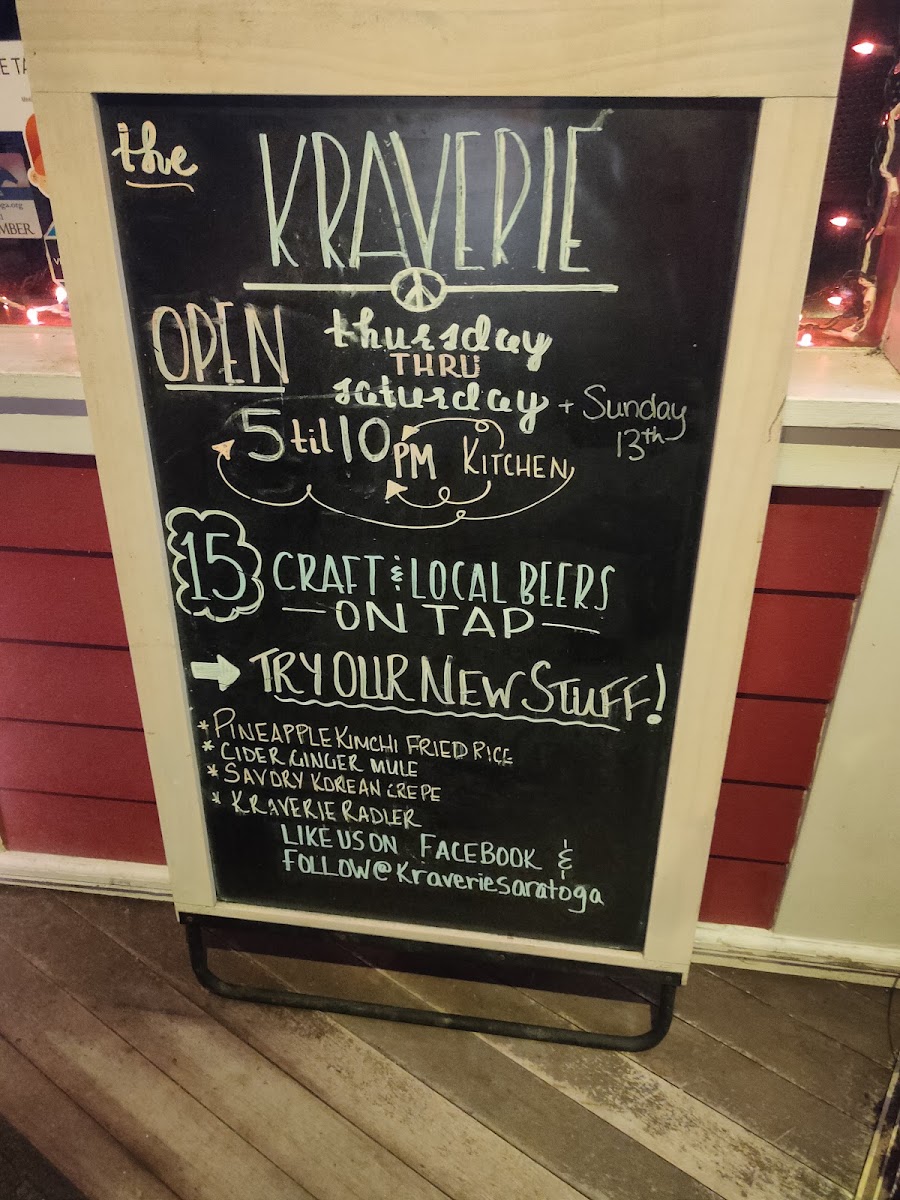 the
KRAVERIE
OPEN
thursday
THRU
saturday
+ Sunday
13th
5 til 10 PM KITCHEN
15
CRAFT & LOCAL BEERS
— ON TAP —
TRY OUR NEW STUFF!
* PINEAPPLE KIMCHI FRIED RICE
* CIDER GINGER MULE
* SAVORY KOREAN CREPE
* KRAVERIE RADLER
LIKE US ON FACEBOOK &
FOLLOW @Kraveriesaratoga